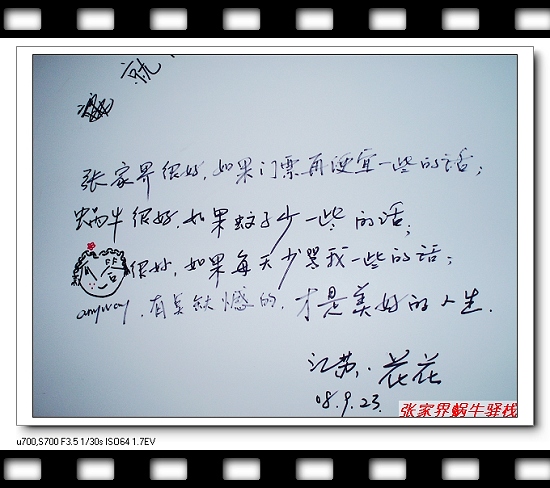 就
张家界很好，如果门票再便宜一些的话；
蜗牛很好，如果蚊子少一些的话；
很好，如果每天少骂我一些的话；
anyway，有点缺憾的，才是美好的人生．
江苏．花花
08.9.23.
张家界蜗牛驿栈
u700,S700 F3.5 1/30s ISO64 1.7EV